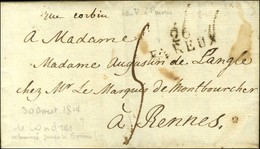 rue corbin
26
EVREUX
A Madame
Madame Augustin de Langle
chez Mr Le Marquis de Montbourcher
5
à Rennes.
30 aout 1814
de Londres